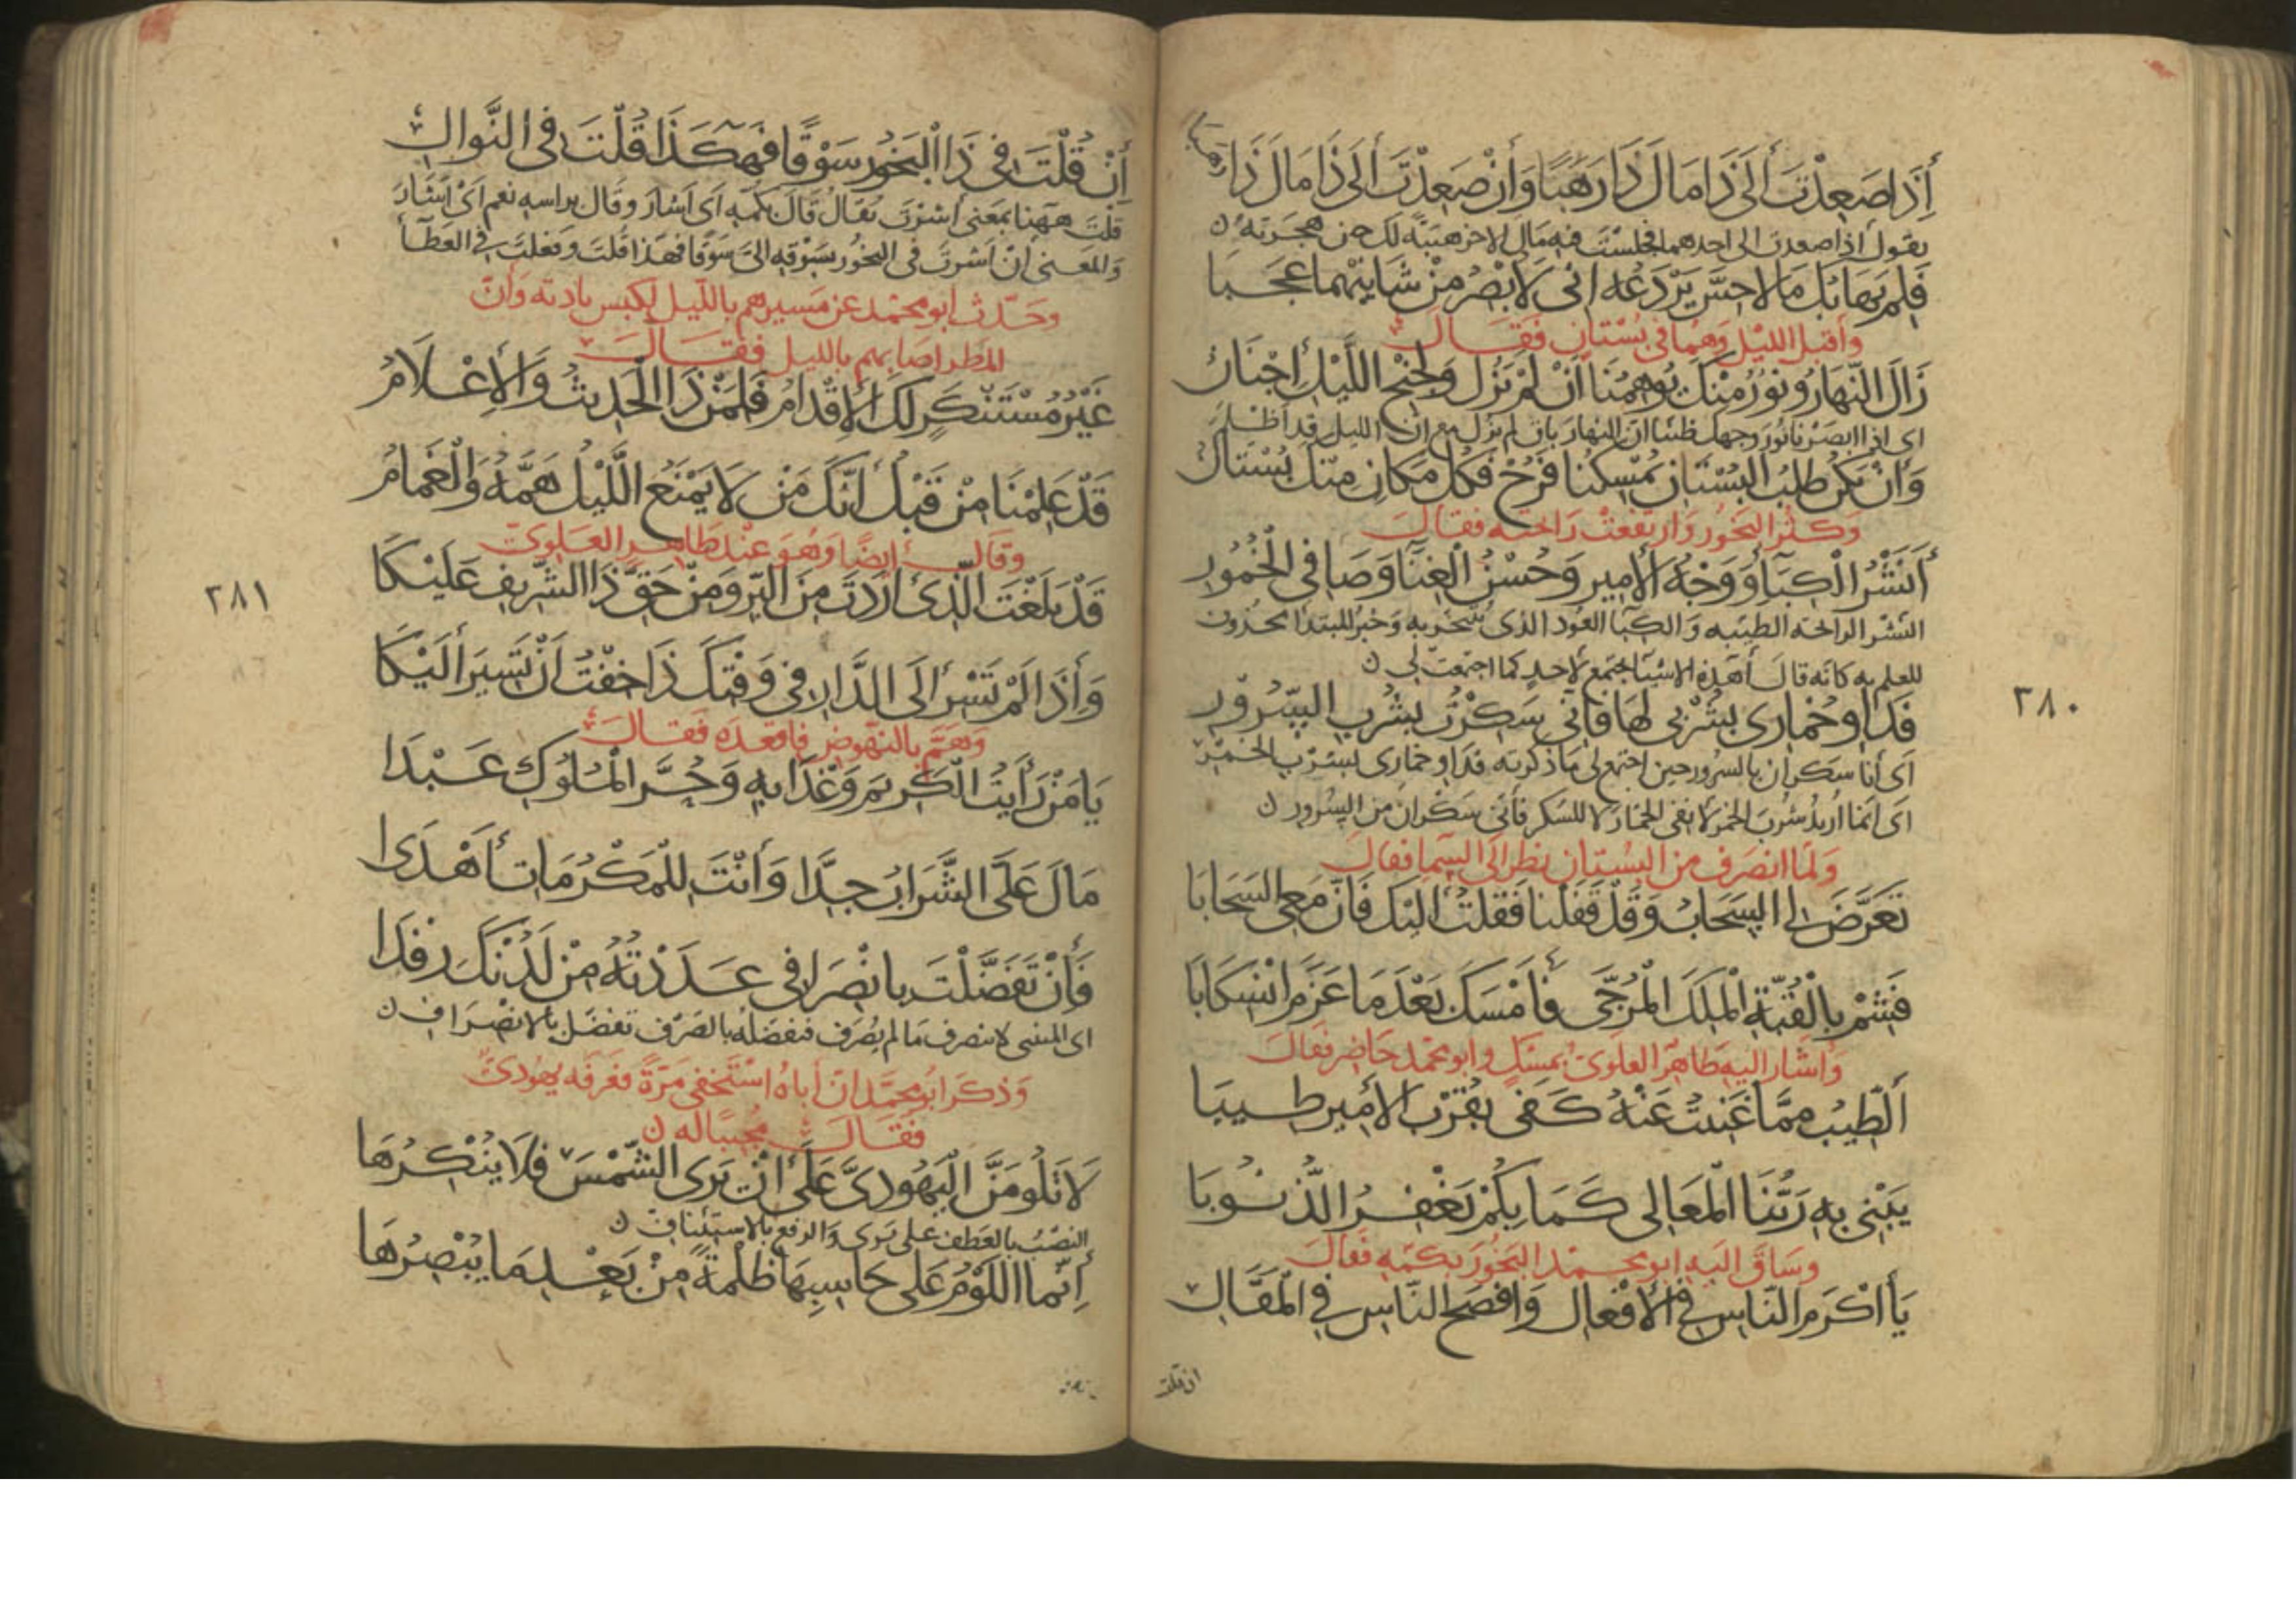 إِذَا صَعِدْتَ إِلَى ذَا مَالَ ذَا رَهَبًا وَإِنْ صَعِدْتَ إِلَى ذَا مَالَ ذَا رَهَبَا
يقول اذا صعدت الى احدهما فجلست فيه مال الاخر هيبة لك من هجرته ن
فَلِمْ يَهَابُكَ مَا لَا حِسَّ يَرْدَعُهُ إِنِّي لَأُبْصِرُ مِنْ شَأْنَيْهِمَا عَجَبَا
وأقبل الليل وهما في بستان فقال
زَالَ النَّهَارُ وَنُورٌ مِنْكَ يُوهِمُنَا أَنْ لَمْ يَزُلْ وَلِجِنْحِ اللَّيْلِ إِجْنَانُ
اى اذا ابصرنا نور وجهك ظننا ان النهار باق لم يزل مع ان الليل قد أظلم
وَإِنْ يَكُنْ طَلَبُ الْبُسْتَانِ يُمْسِكُنَا فَرُحْ فَكُلُّ مَكَانٍ مِنْكَ بُسْتَانُ
وكثر البخور وارتفعت رائحته فقال
أَنَشْرُ الْكِبَاءِ وَوَجْهُ الْأَمِيرِ وَحُسْنُ الْغِنَاءِ وَصَافِي الْخُمُورِ
النشر الرائحه الطيبه والكبا العود الذى يتبخر به وخبر المبتدا محذوف
للعلم به كانه قال أهذه الاشيا تجتمع لاحد كما اجتمعت لي ن
فَدَاوِ خُمَارِى بِشُرْبِي لَهَا فَإِنِّي سَكِرْتُ بِشُرْبِ السُّرُورِ
اى أنا سكران بالسرور حين اجتمع لى ما ذكرته فداو خمارى بشرب الخمر
اى انما اريد شرب الخمر لانفى الخمار لا للسكر فانى سكران من السرور ن
ولما انصرف من البستان نظر الى السما فقال
تَعَرَّضَ لِي السَّحَابُ وَقَدْ قَفَلْنَا فَقُلْتُ إِلَيْكَ فَإِنَّ مَعِي السَّحَابَا
فَشِمْ بِالْقُبَّةِ الْمَلِكَ الْمُرَجَّى فَأَمْسَكَ بَعْدَمَا عَزَمَ انْسِكَابَا
وأشار اليه طاهر العلوى بمسك وابو محمد حاضر فقال
أَلطِّيبُ مِمَّا غَنِيتُ عَنْهُ كَفَى بِقُرْبِ الْأَمِيرِ طِيبَا
يَبْنِي بِهِ رَبُّنَا الْمَعَالِى كَمَا بِكُمْ يَغْفِرُ الذُّنُوبَا
وساق اليه ابو محمد البخور بكمه فقال
يَا أَكْرَمَ النَّاسِ فِي الْأَفْعَالِ وَأَفْصَحَ النَّاسِ فِي الْمَقَالِ
ان قلت
٢٨٠
إِنْ قُلْتَ فِي ذَا الْبَخُورِ سَوْقًا فَهَكَذَا قُلْتَ فِي النَّوَالِ
قلت ههنا بمعنى اشرت يقال قال بكمه اى اشار وقال براسه نعم اى أشار
والمعنى إن اشرت فى البخور بسوقه الى سوقا فهكذا قلت وفعلت فى العطاء
وحدث ابو محمد عن مسيرهم بالليل لكبس بادية وان
المطر اصابهم بالليل فقال
غَيْرُ مُسْتَنْكَرٍ لَكَ الْإِقْدَامُ فَلِمَنْ ذَا الْحَدِيثُ وَالْإِعْلَامُ
قَدْ عَلِمْنَا مِنْ قَبْلُ أَنَّكَ مَنْ لَا يَمْنَعُ اللَّيْلُ هَمَّهُ وَالْغَمَامُ
وقال أيضا وهو عند طاهر العلوى
قَدْ بَلَغْتَ الَّذِي أَرَدْتَ مِنَ الْبِرِّ وَمِنْ حَقِّ ذَا الشَّرِيفِ عَلَيْكَا
وَإِذَا لَمْ تَسِرْ إِلَى الدَّارِ فِي وَقْتِكَ ذَا خِفْتُ أَنْ تَسِيرَ إِلَيْكَا
وهم بالنهوض فاقعده فقال
يَا مَنْ رَأَيْتُ الْكَرِيمَ وَغْدَا بِهِ وَحُرَّ الْمُلُوكِ عَبْدَا
مَالَ عَلَىَّ الشَّرَابُ جِدًّا وَأَنْتَ لِلْمَكْرُمَاتِ أَهْدَى
فَإِنْ تَفَضَّلْتَ بِانْصِرَافِي عَدَدْتُهُ مِنْ لَدُنْكَ رِفْدَا
اى المنتشى لا ينصرف ما لم يصرف فتفضله بالصرف تفضل بالانصراف ن
وذكر ابو محمد ان أباه استخفى مرة فعرفه يهودى
فقال مجيبا له ن
لَا تَلُومَنَّ الْيَهُودِىَّ عَلَى أَنْ يَرَى الشَّمْسَ فَلَا يُنْكِرُهَا
النصب بالعطف على يرى والرفع بالاستئناف ن
إِنَّمَا اللَّوْمُ عَلَى حَاسِبِهَا ظُلْمَةً مِنْ بَعْدِ مَا يُبْصِرُهَا
٢٨١